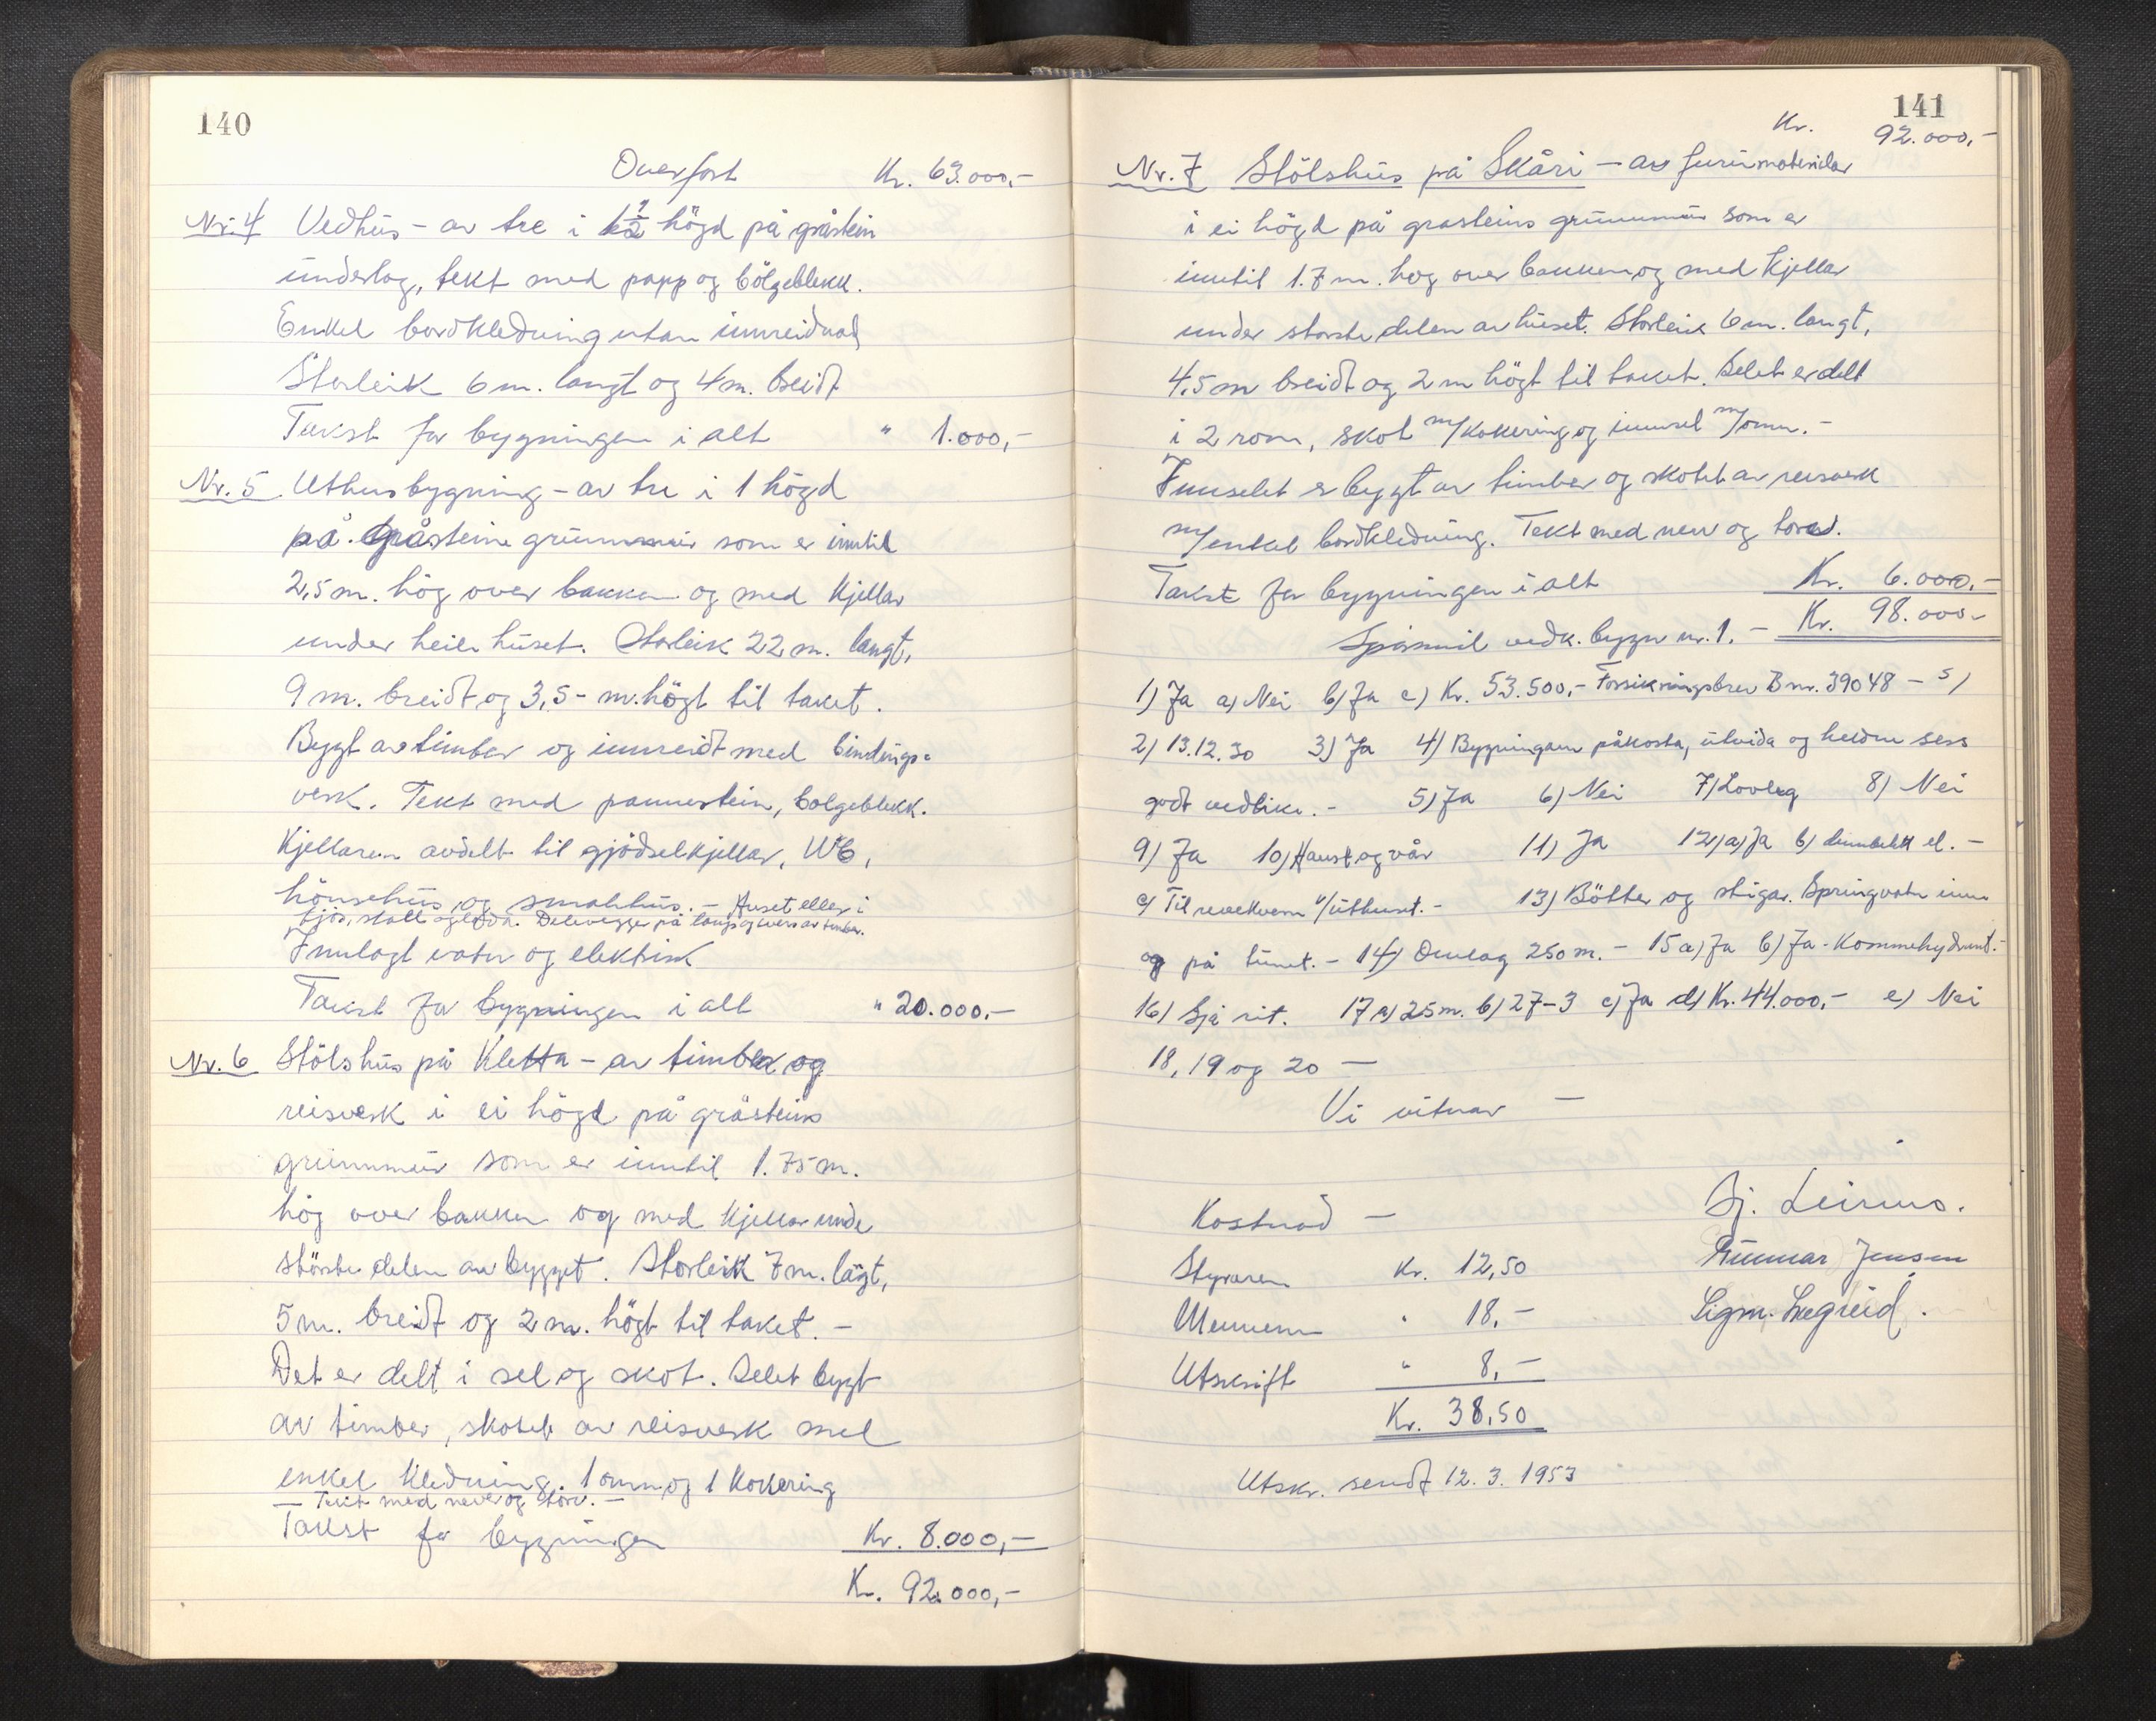 140
Overfört Kr. 63.000,-
Nr. 4 Vedhus - av tre i 1½ högd på gråstein
underlag, tekt med papp og bölgeblekk.
Enkel bordkledning utan innreidnad
Storleik 6 m. langt og 4 m. breidt
Takst for bygningen i alt " 1.000,-
Nr. 5 Uthusbygning - av tre i 1 högd
på gråsteins grunnmur som er inntil
2,5 m. hög over bakken og med kjellar
under heile huset. Storleik 22 m. langt,
9 m. breidt og 3,5 - m. högt til taket.
Bygt av timber og innreidt med bindings-
verk. Tekt med pannestein, bolgeblekk.
Kjellaren avdelt til gjödselkjellar, WC,
hönsehus og smahhus. - Huset elles i
fjös, stall og löda. Delevegger på langs og tvers av timber.
Innlagt vatn og elektrisk
Takst for bygningen i alt " 20.000,-
Nr. 6 Stölshus på Kletta - av timber og
reisverk i ei högd på gråsteins
grunnmur som er inntil 1.75 m.
hög over bakken og med kjellar unde
störste delen av bygget. Storleik 7 m. lagt,
5 m. breidt og 2 m. högt til taket. -
Det er delt i sel og skot. Selet bygt
av timber, skotet av reisverk med
enkel kledning. 1 omn og 1 kokering
- Tekt med never og torv. -
Takst for bygningen Kr. 8.000,-
Kr. 92.000,-
141
Kr. 92.000,-
Nr. 7 Stölshus på Skåri - av furumaterialar
i ei högd på grasteins grunnmur som er
inntil 1.7 m. hog over bakken og med kjellar
under storste delen av huset. Storleik 6 m. langt,
4,5 m breidt og 2 m högt til taket. Selet er delt
i 2 rom, skot m/kokering og innsel m/omn. -
Innselet er bygt av timber og skotet av reisverk
m/enkel bordkledning. Tekt med never og torv.
Takst for bygningen i alt Kr. 6.000,-
Spörsmål vedk. bygn nr. 1. - Kr. 98.000-
1) Ja a) Nei b) Ja c) Kr. 53.500,- Forsikringsbrev B nr. 39048 - 5)
2) 13.12.30 3) Ja 4) Bygningane påkosta, utvida og heldne sers
godt vedlike. - 5) Ja 6) Nei 7) Lovleg 8) Nei
9) Ja 10) Haust og vår 11) Ja 12) a) Ja b) el. -
c) Til v/uthuset. - 13) Bötter og stigar. Springvatn inne
og på tunet. - 14) Omlag 250 m. - 15 a) Ja b) Ja - Kommehydrant. -
16) Sjå rit. 17 a) 25 m. b) 27-3 c) Ja d) Kr. 44.000,- e) Nei
18, 19 og 20 -
Vi vitnar -
Kostnad - Sj. Leirmo.
Styraren Kr. 12,50 Gunnar Jensen
Mennene " 18,- Sigm. Lægreid.
Utskrift " 8,-
Kr. 38,50
Utskr. sendt 12. 3. 1953